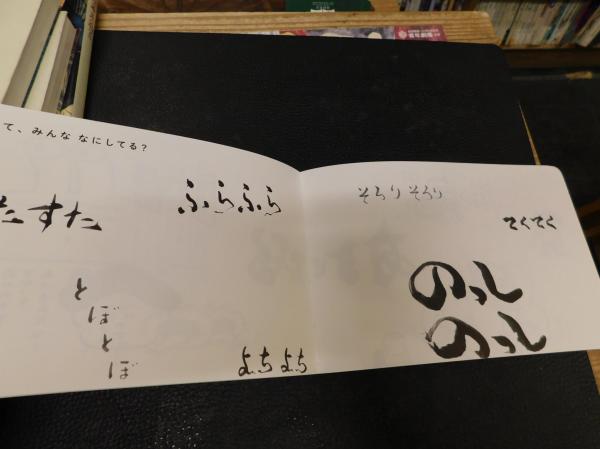 て、みんな なにしてる?
たすた
ふらふら
とぼとぼ
よちよち
そろり そろり
てくてく
のっし
のっし